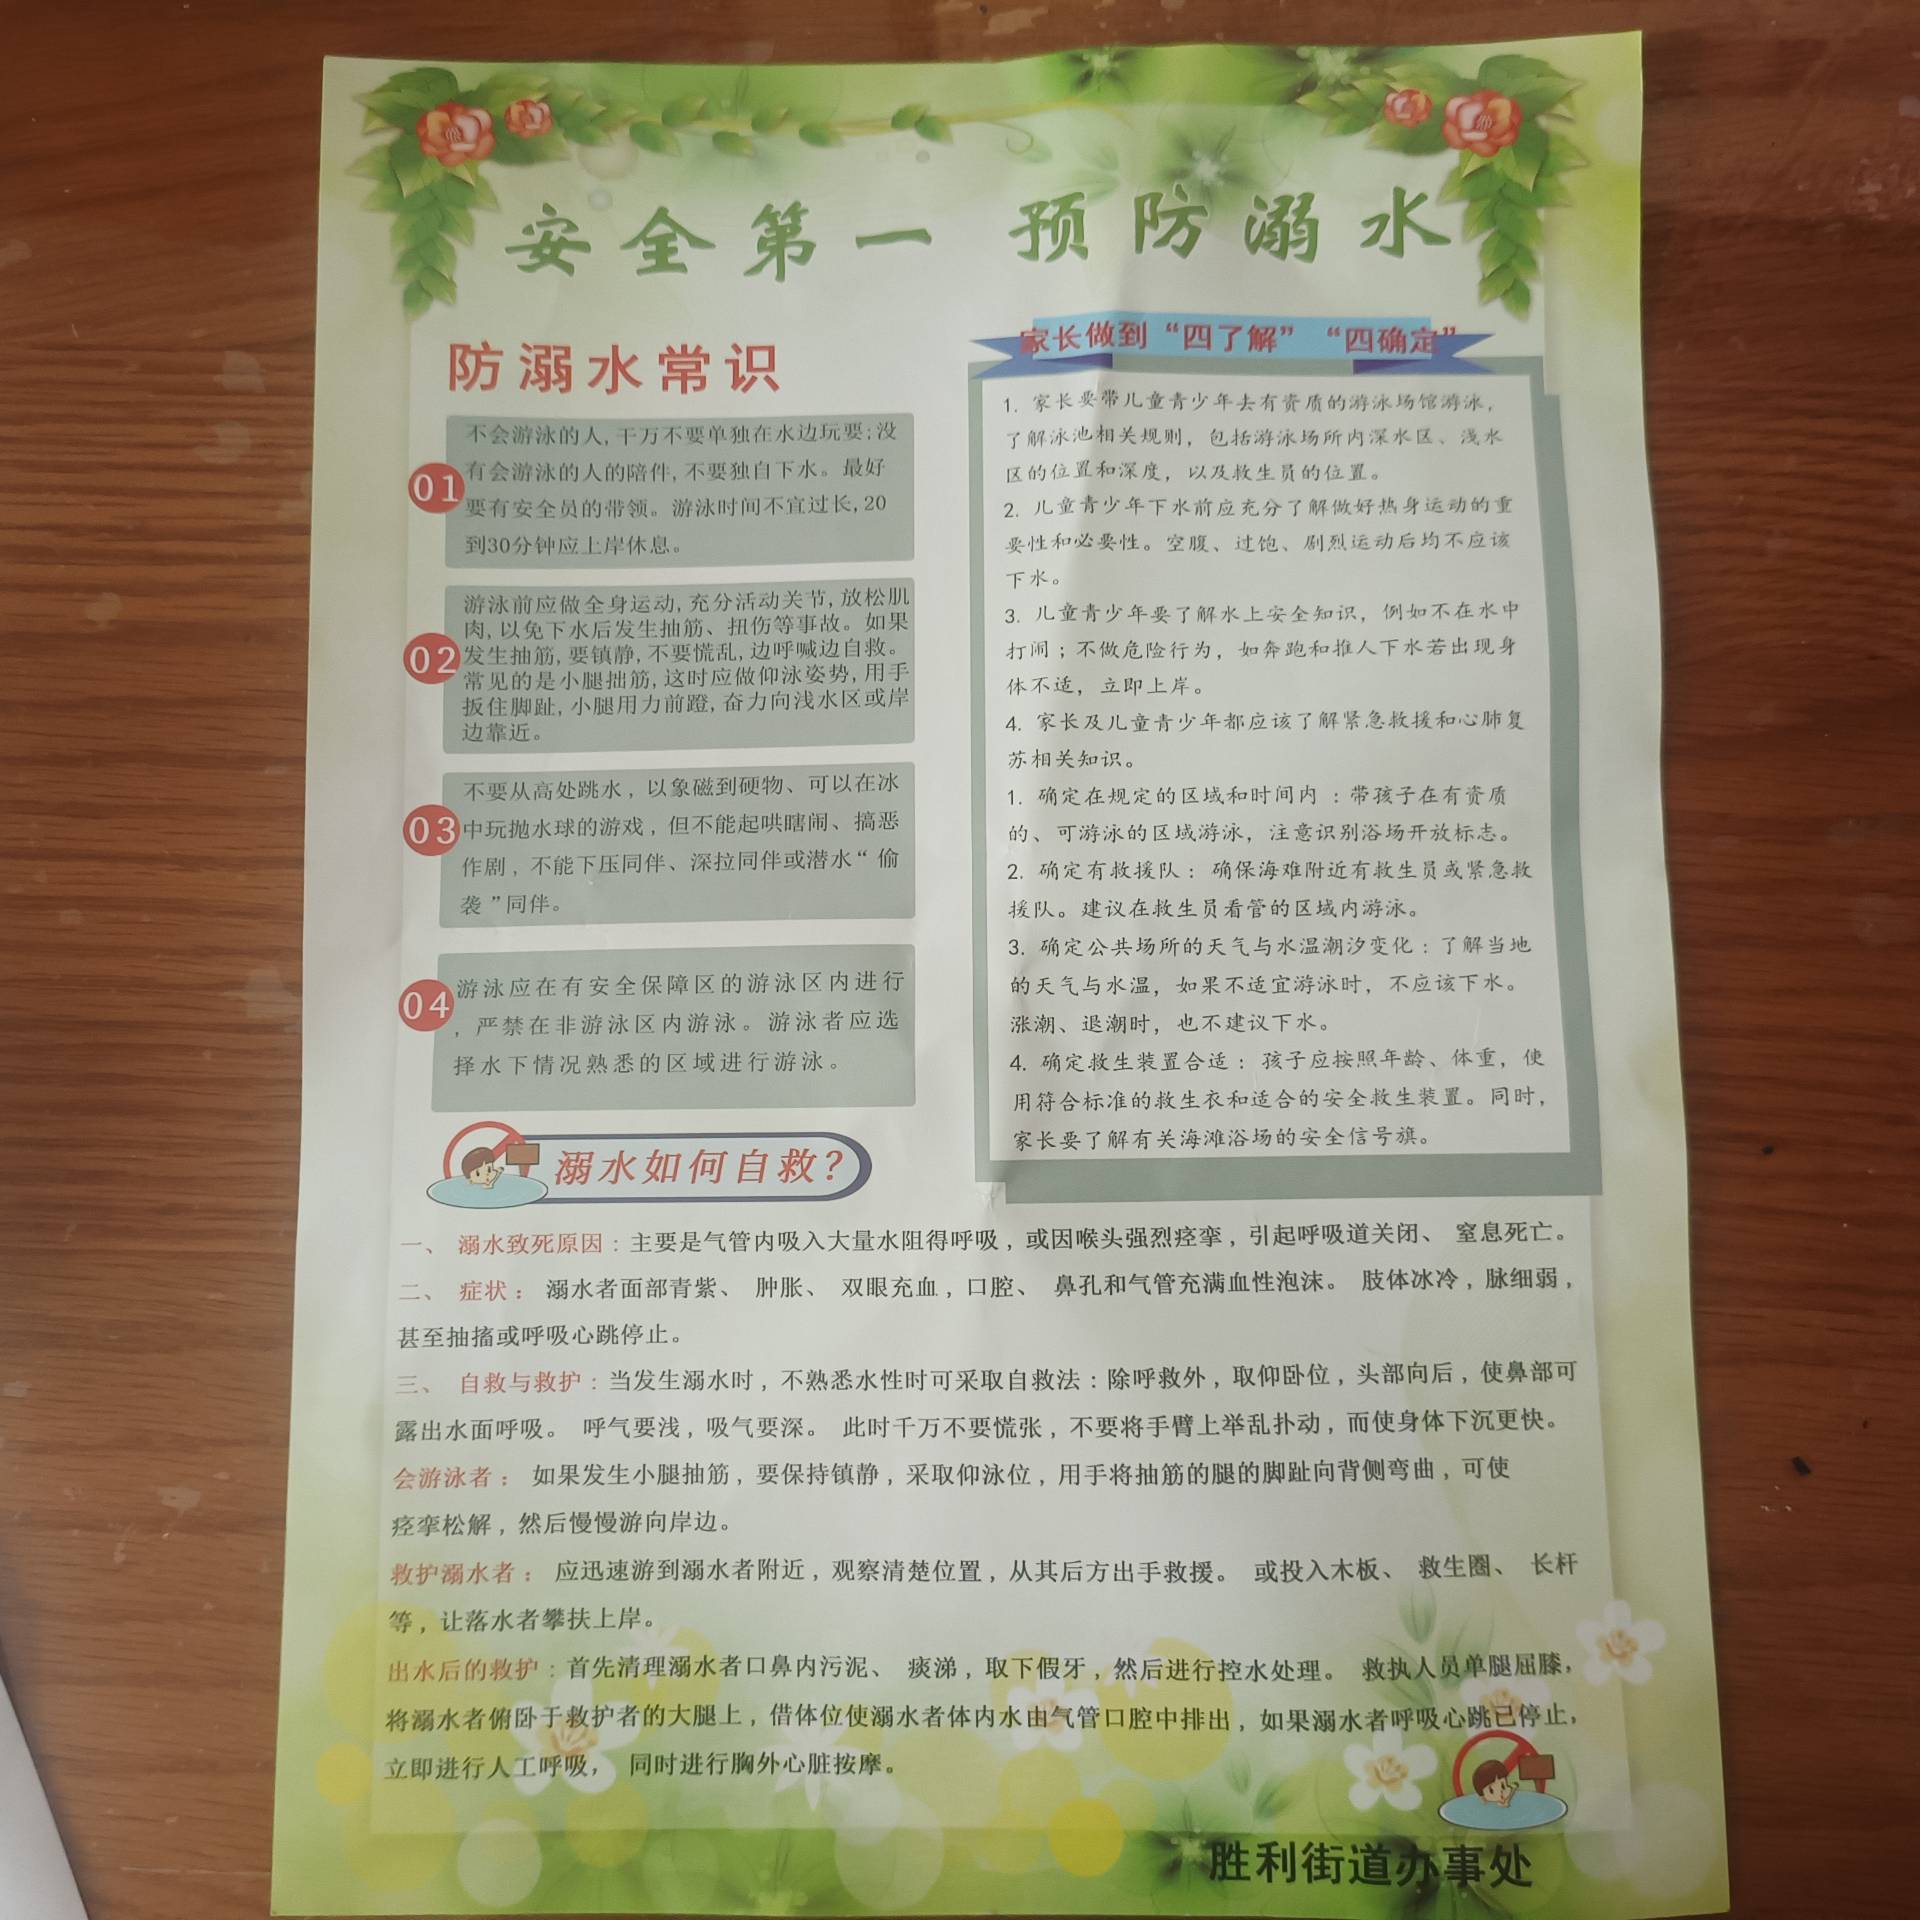 安全第一 预防溺水
防溺水常识
01
不会游泳的人,千万不要单独在水边玩耍;没
有会游泳的人的陪伴,不要独自下水。最好
要有安全员的带领。游泳时间不宜过长,20
到30分钟应上岸休息。
02
游泳前应做全身运动,充分活动关节,放松肌
肉,以免下水后发生抽筋、扭伤等事故。如果
发生抽筋,要镇静,不要慌乱,边呼喊边自救。
常见的是小腿拙筋,这时应做仰泳姿势,用手
扳住脚趾,小腿用力前蹬,奋力向浅水区或岸
边靠近。
03
不要从高处跳水，以象磁到硬物、可以在冰
中玩抛水球的游戏，但不能起哄瞎闹、搞恶
作剧，不能下压同伴、深拉同伴或潜水“偷
袭”同伴。
04
游泳应在有安全保障区的游泳区内进行
，严禁在非游泳区内游泳。游泳者应选
择水下情况熟悉的区域进行游泳。
家长做到“四了解”“四确定”
1. 家长要带儿童青少年去有资质的游泳场馆游泳，
了解泳池相关规则，包括游泳场所内深水区、浅水
区的位置和深度，以及救生员的位置。
2. 儿童青少年下水前应充分了解做好热身运动的重
要性和必要性。空腹、过饱、剧烈运动后均不应该
下水。
3. 儿童青少年要了解水上安全知识，例如不在水中
打闹；不做危险行为，如奔跑和推人下水若出现身
体不适，立即上岸。
4. 家长及儿童青少年都应该了解紧急救援和心肺复
苏相关知识。
1. 确定在规定的区域和时间内：带孩子在有资质
的、可游泳的区域游泳，注意识别浴场开放标志。
2. 确定有救援队：确保海难附近有救生员或紧急救
援队。建议在救生员看管的区域内游泳。
3. 确定公共场所的天气与水温潮汐变化：了解当地
的天气与水温，如果不适宜游泳时，不应该下水。
涨潮、退潮时，也不建议下水。
4. 确定救生装置合适：孩子应按照年龄、体重，使
用符合标准的救生衣和适合的安全救生装置。同时，
家长要了解有关海滩浴场的安全信号旗。
溺水如何自救？
一、 溺水致死原因：主要是气管内吸入大量水阻得呼吸，或因喉头强烈痉挛，引起呼吸道关闭、 窒息死亡。
二、 症状： 溺水者面部青紫、 肿胀、 双眼充血，口腔、 鼻孔和气管充满血性泡沫。 肢体冰冷，脉细弱，
甚至抽搐或呼吸心跳停止。
三、 自救与救护：当发生溺水时，不熟悉水性时可采取自救法：除呼救外，取仰卧位，头部向后，使鼻部可
露出水面呼吸。 呼气要浅，吸气要深。 此时千万不要慌张，不要将手臂上举乱扑动，而使身体下沉更快。
会游泳者： 如果发生小腿抽筋，要保持镇静，采取仰泳位，用手将抽筋的腿的脚趾向背侧弯曲，可使
痉挛松解，然后慢慢游向岸边。
救护溺水者： 应迅速游到溺水者附近，观察清楚位置，从其后方出手救援。 或投入木板、 救生圈、 长杆
等，让落水者攀扶上岸。
出水后的救护：首先清理溺水者口鼻内污泥、 痰涕，取下假牙，然后进行控水处理。 救执人员单腿屈膝，
将溺水者俯卧于救护者的大腿上，借体位使溺水者体内水由气管口腔中排出，如果溺水者呼吸心跳已停止，
立即进行人工呼吸， 同时进行胸外心脏按摩。
胜利街道办事处